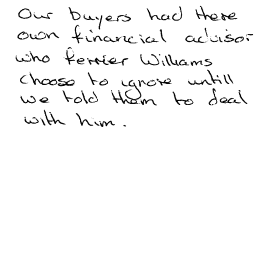 Our buyers had there
own financial advisor
who ferrier Williams
choose to ignore untill
we told them to deal
with him.